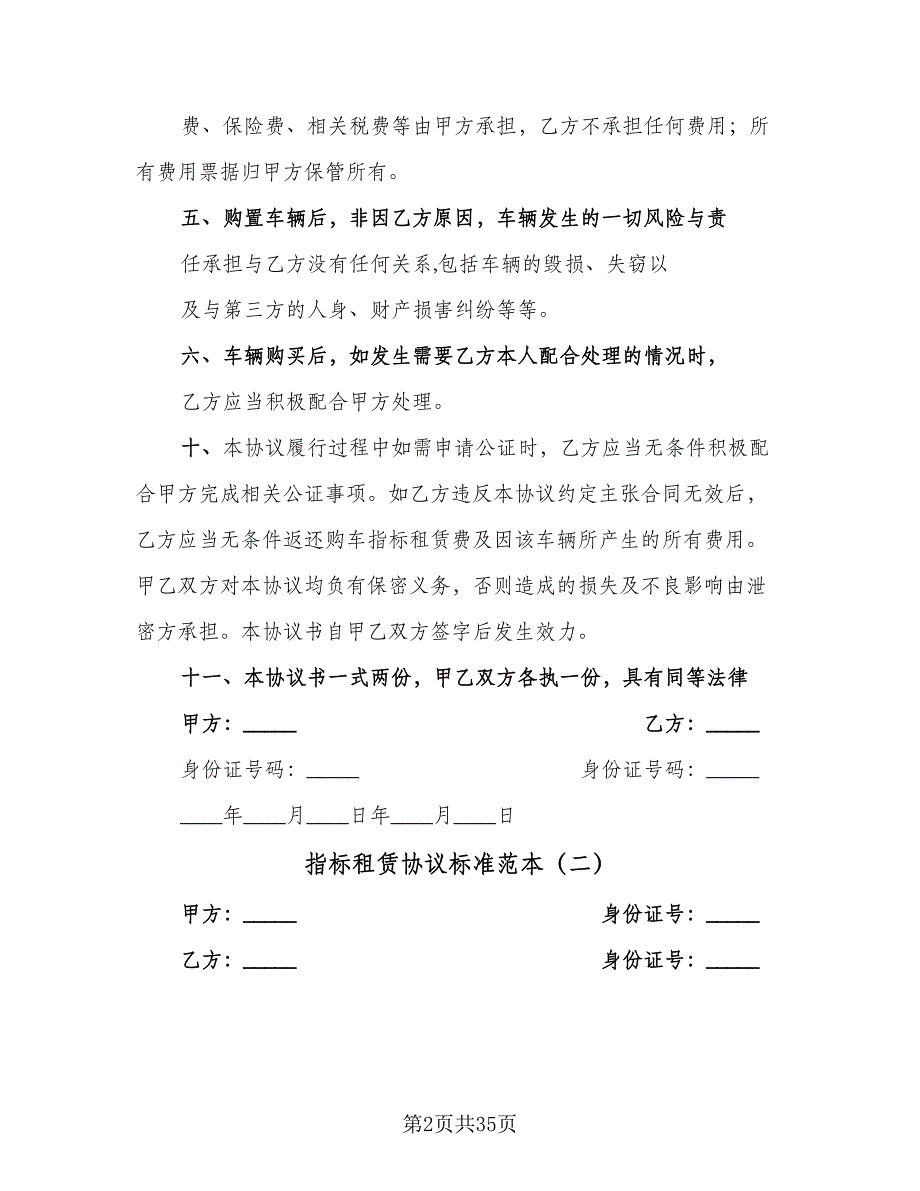 费、保险费、相关税费等由甲方承担，乙方不承担任何费用；所
有费用票据归甲方保管所有。
五、购置车辆后，非因乙方原因，车辆发生的一切风险与责
任承担与乙方没有任何关系,包括车辆的毁损、失窃以
及与第三方的人身、财产损害纠纷等等。
六、车辆购买后，如发生需要乙方本人配合处理的情况时，
乙方应当积极配合甲方处理。
十、本协议履行过程中如需申请公证时，乙方应当无条件积极配
合甲方完成相关公证事项。如乙方违反本协议约定主张合同无效后，
乙方应当无条件返还购车指标租赁费及因该车辆所产生的所有费用。
甲乙双方对本协议均负有保密义务，否则造成的损失及不良影响由泄
密方承担。本协议书自甲乙双方签字后发生效力。
十一、本协议书一式两份，甲乙双方各执一份，具有同等法律
甲方：_____ 乙方：_____
身份证号码：_____ 身份证号码：_____
____年____月____日年____月____日
指标租赁协议标准范本（二）
甲方：_____ 身份证号：_____
乙方：_____ 身份证号：_____
第2页共35页